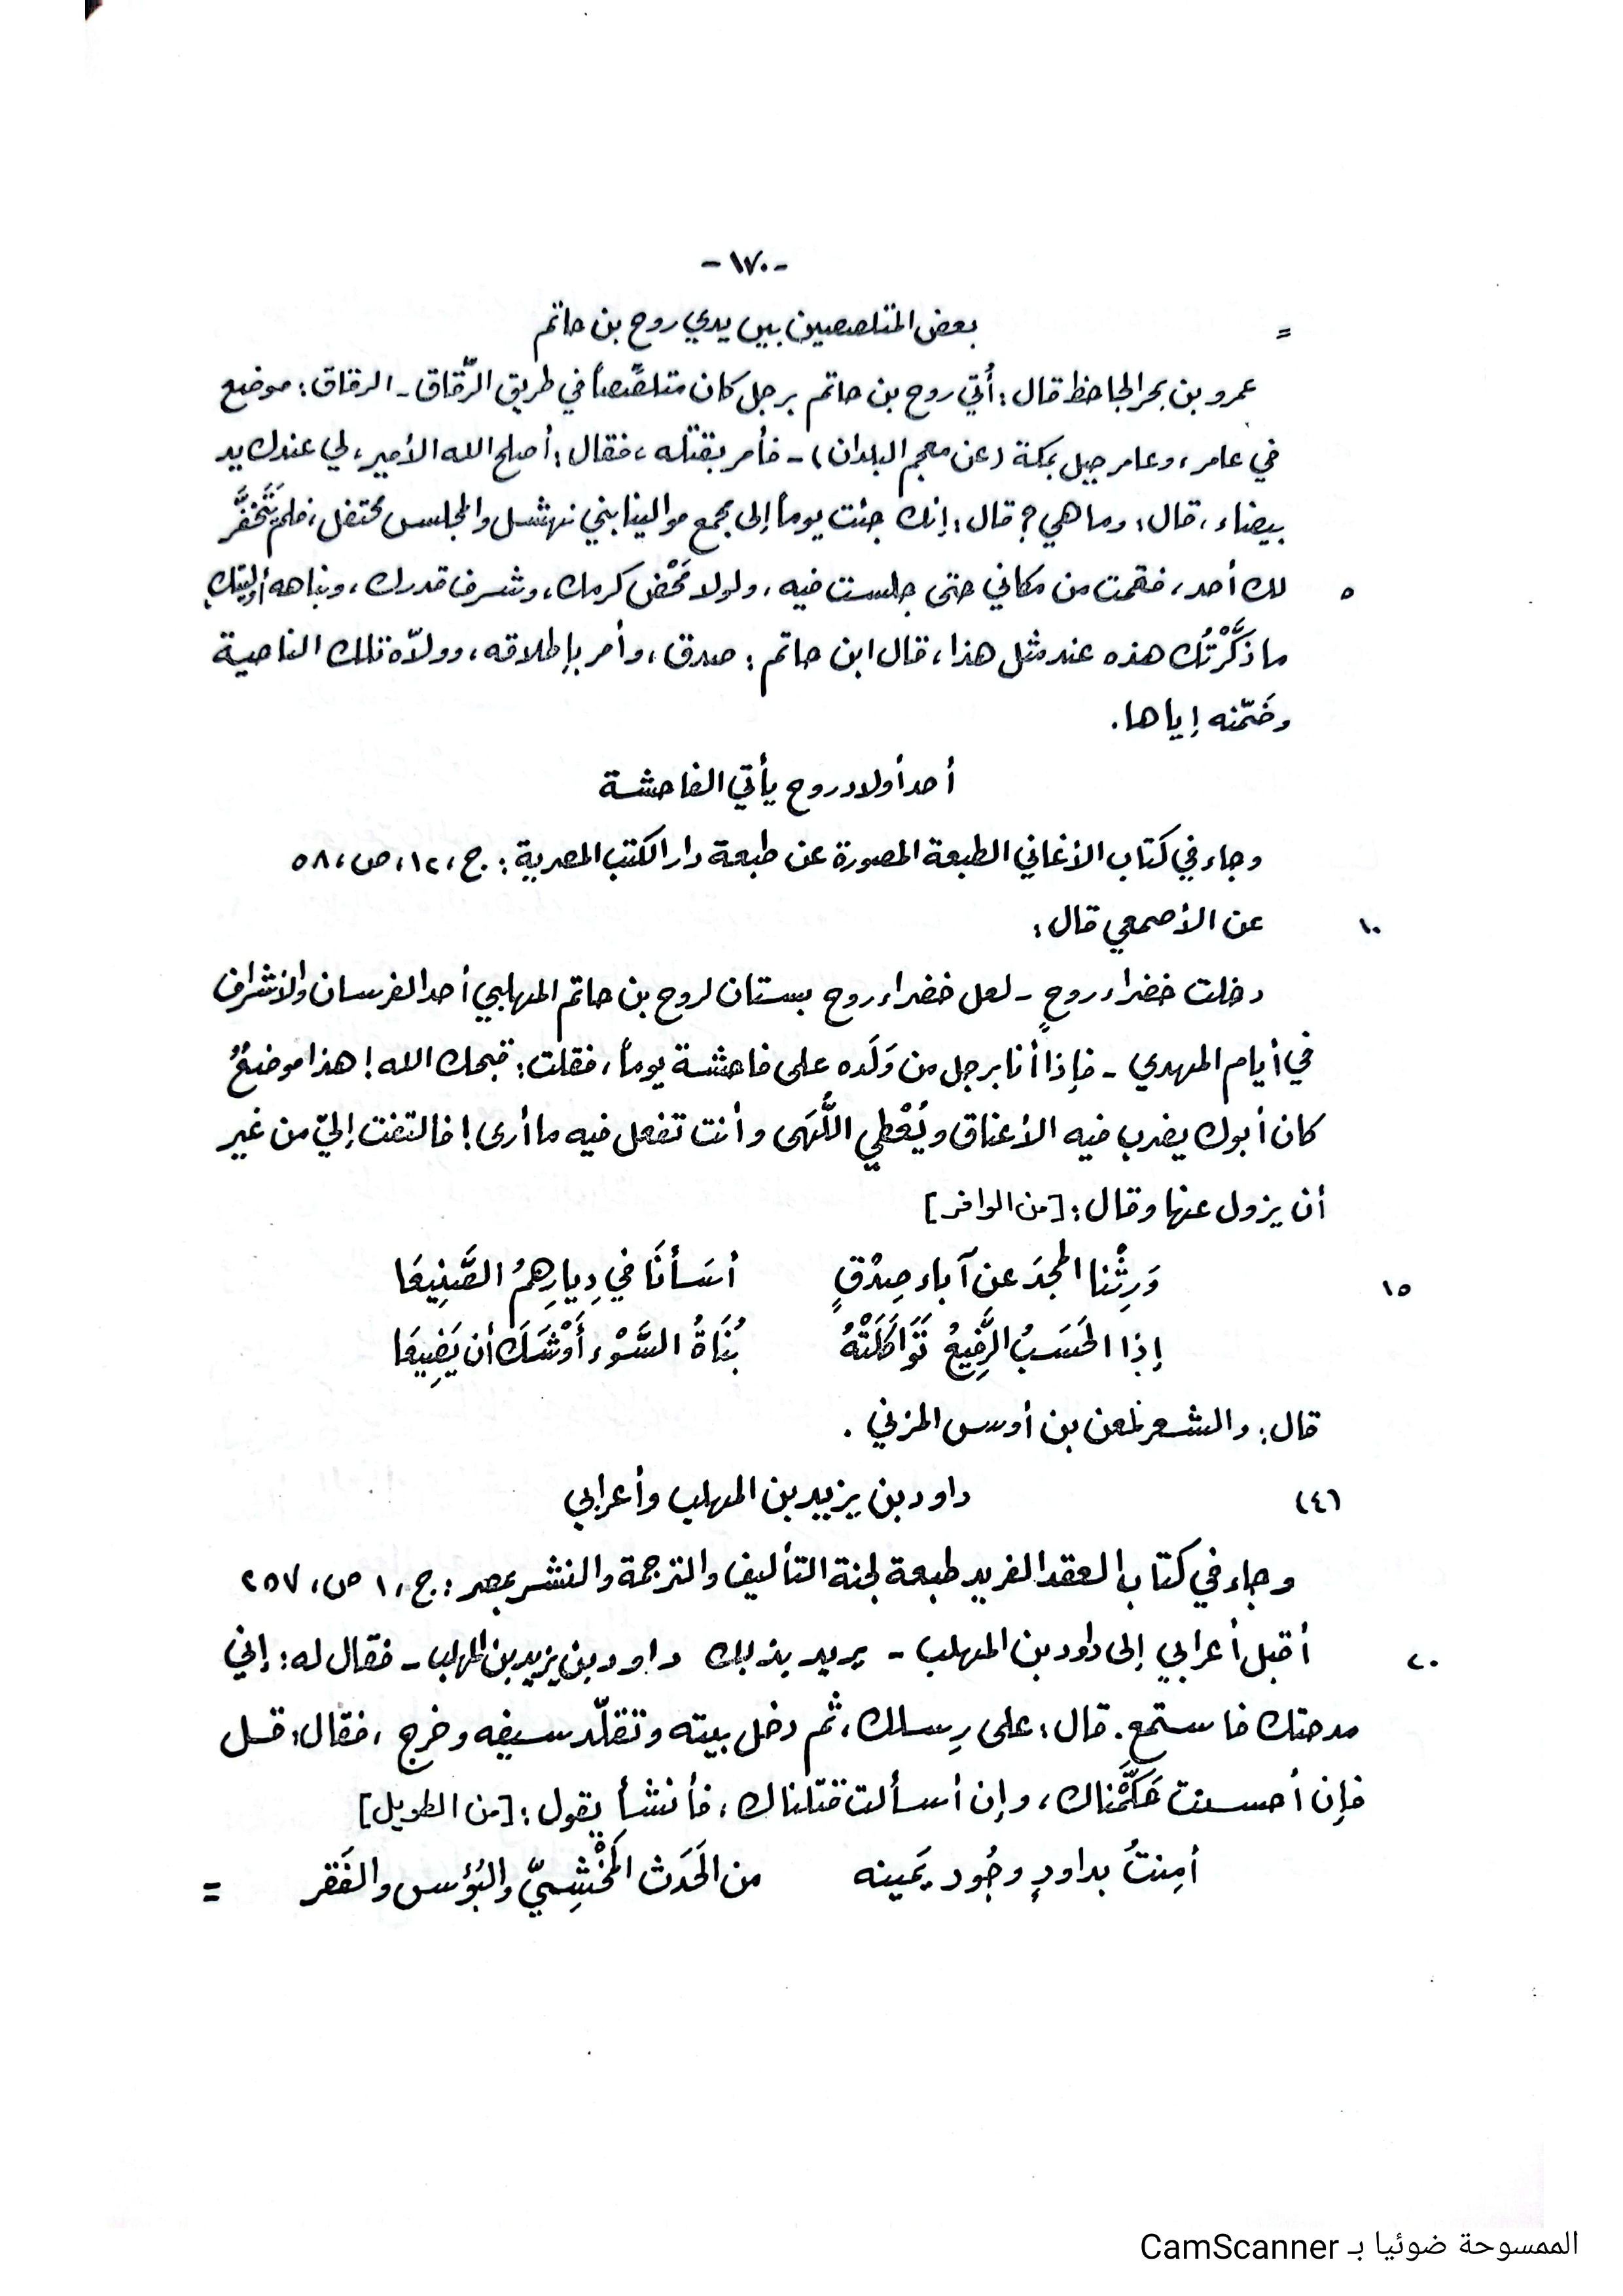 -١٧٠-
= بعض المتلصصين بين يدي روح بن حاتم
عمرو بن بحر الجاحظ قال: أُتي روح بن حاتم برجل كان متلصّصاً في طريق الرّقاق - الرقاق: موضع
في عامر، وعامر جبل بمكة (عن معجم البلدان) - فأمر بقتله، فقال: أصلح الله الأمير، لي عندك يد
بيضاء، قال: وما هي؟ قال: إنك جئت يوماً إلى مجمع موالينا بني نهشل والمجلس محتفل، فلم يَتَحَفَّز
٥ لك أحد، فقمت من مكاني حتى جلست فيه، ولولا مَحْض كرمك، وشرف قدرك، ونباهة أوليتك
ما ذَكَّرْتُك هذه عند مثل هذا، قال ابن حاتم: صدق، وأمر بإطلاقه، وولاّه تلك الناحية
وضَمّنه إياها.
أحد أولاد روح يأتي الفاحشة
وجاء في كتاب الأغاني الطبعة المصورة عن طبعة دار الكتب المصرية: ج، ١٢، ص، ٥٨
١٠ عن الأصمعي قال:
دخلت خضراء روحٍ - لعل خضراء روح بستان لروح بن حاتم المهلبي أحد الفرسان والأشراف
في أيام المهدي - فإذا أنا برجل من وَلَده على فاحشة يوماً، فقلت: قبحك الله! هذا موضعٌ
كان أبوك يضرب فيه الأعناق ويُعْطِي اللُّهَى وأنت تفعل فيه ما أرى! فالتفت إليّ من غير
أن يزول عنها وقال: [من الوافر]
١٥ وَرِثْنا المجدَ عن آباء صِدْقٍ أسَأنَا في دِيارِهِمُ الصَّنِيعَا
إذا الحَسَبُ الرَّفِيعُ تَوَاكَلَتْهُ بُنَاةُ السَّوْءِ أَوْشَكَ أن يَضِيعَا
قال: والشعر لمعن بن أوس المزني.
(٤) داود بن يزيد بن المهلب وأعرابي
وجاء في كتاب العقد الفريد طبعة لجنة التأليف والترجمة والنشر بمصر: ج، ١ ص، ٢٥٧
٢٠ أقبل أعرابي إلى داود بن المهلب - يريد بذلك داود بن يزيد بن المهلب - فقال له: إني
مدحتك فاستمع. قال: على رِسلك، ثم دخل بيته وتقلّد سيفه وخرج، فقال: قل
فإن أحسنت حَكَّمْناك، وإن أسأت قتلناك، فأنشأ يقول: [من الطويل]
أمِنتُ بداودٍ وجُود يَمينه من الحَدَث المَخْشِيّ والبُؤس والفَقر =
الممسوحة ضوئيا بـ CamScanner